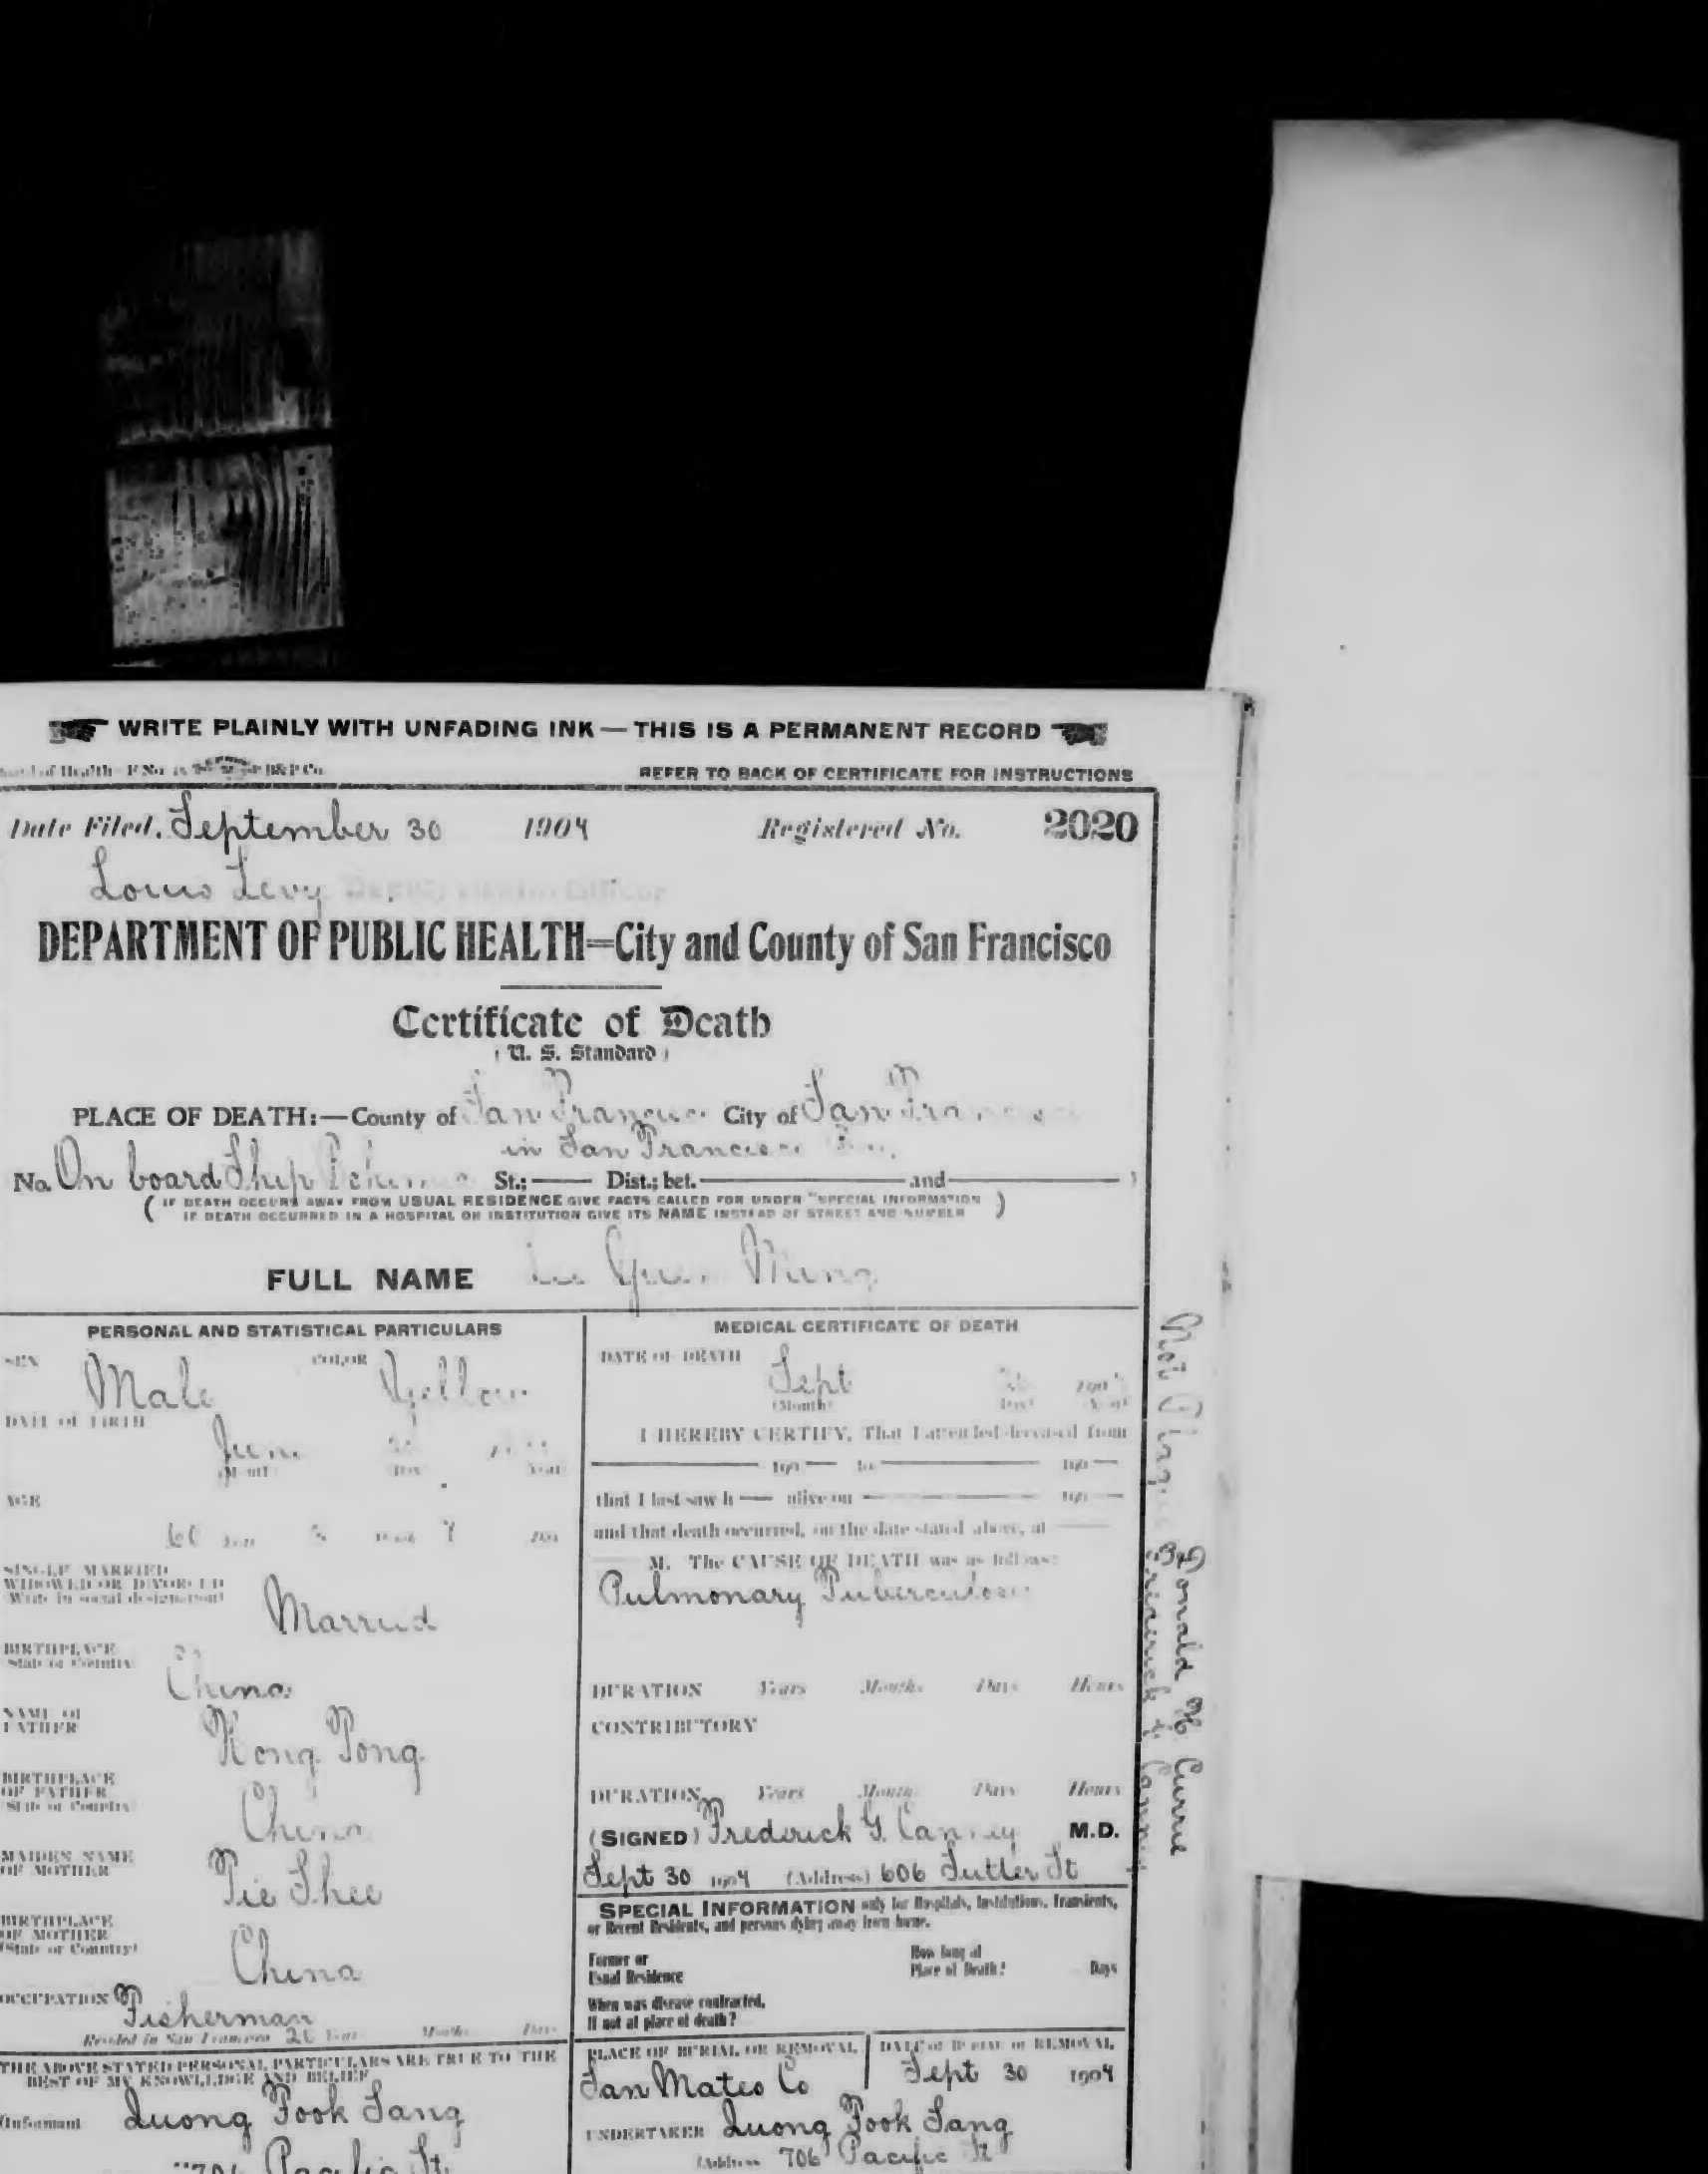 WRITE PLAINLY WITH UNFADING INK — THIS IS A PERMANENT RECORD
of Health B&P Co.
REFER TO BACK OF CERTIFICATE FOR INSTRUCTIONS
Date Filed, September 30 1904 Registered No. 2020
Louis Levy Deputy Health Officer
DEPARTMENT OF PUBLIC HEALTH=City and County of San Francisco
Certificate of Death
( U. S. Standard )
PLACE OF DEATH:—County of San Francisco City of San Francisco
in San Francisco
No. On board Ship St.; —— Dist.; bet. —— and —— )
( IF DEATH OCCURS AWAY FROM USUAL RESIDENCE GIVE FACTS CALLED FOR UNDER "SPECIAL INFORMATION
IF DEATH OCCURRED IN A HOSPITAL OR INSTITUTION GIVE ITS NAME INSTEAD OF STREET AND NUMBER )
FULL NAME Ming
PERSONAL AND STATISTICAL PARTICULARS
SEX Male COLOR Yellow
DATE OF BIRTH
(Month) (Day) (Year)
AGE
60
SINGLE MARRIED
WIDOWED OR DIVORCED
(Write in social designation)
Married
BIRTHPLACE
State or Country
China
NAME OF
FATHER
Hong Tong
BIRTHPLACE
OF FATHER
State or Country
China
MAIDEN NAME
OF MOTHER
Pie Shee
BIRTHPLACE
OF MOTHER
(State or Country)
China
OCCUPATION
Fisherman
Resided in San Francisco 20 Years Months Days
THE ABOVE STATED PERSONAL PARTICULARS ARE TRUE TO THE
BEST OF MY KNOWLEDGE AND BELIEF
(Informant Quong Fook Sang
706 Pacific St
MEDICAL CERTIFICATE OF DEATH
DATE OF DEATH
Sept 190
(Month) (Day) (Year)
I HEREBY CERTIFY, That I attended deceased from
—— 190 —— to —— 190 ——
that I last saw h —— alive on —— 190 ——
and that death occurred, on the date stated above, at ——
—— M. The CAUSE OF DEATH was as follows:
Pulmonary Tuberculosis
DURATION Years Months Days Hours
CONTRIBUTORY
DURATION Years Months Days Hours
(SIGNED) Frederick G. Canney M.D.
Sept 30 1904 (Address) 606 Sutter St
SPECIAL INFORMATION only for Hospitals, Institutions, Transients,
or Recent Residents, and persons dying away from home.
Former or
Usual Residence
How long at
Place of Death? Days
When was disease contracted,
If not at place of death?
PLACE OF BURIAL OR REMOVAL
San Mateo Co
DATE of BURIAL or REMOVAL
Sept 30 1904
UNDERTAKER Quong Fook Sang
(Address 706 Pacific St
Not Plague
Donald H Currie
Frederick G Canney